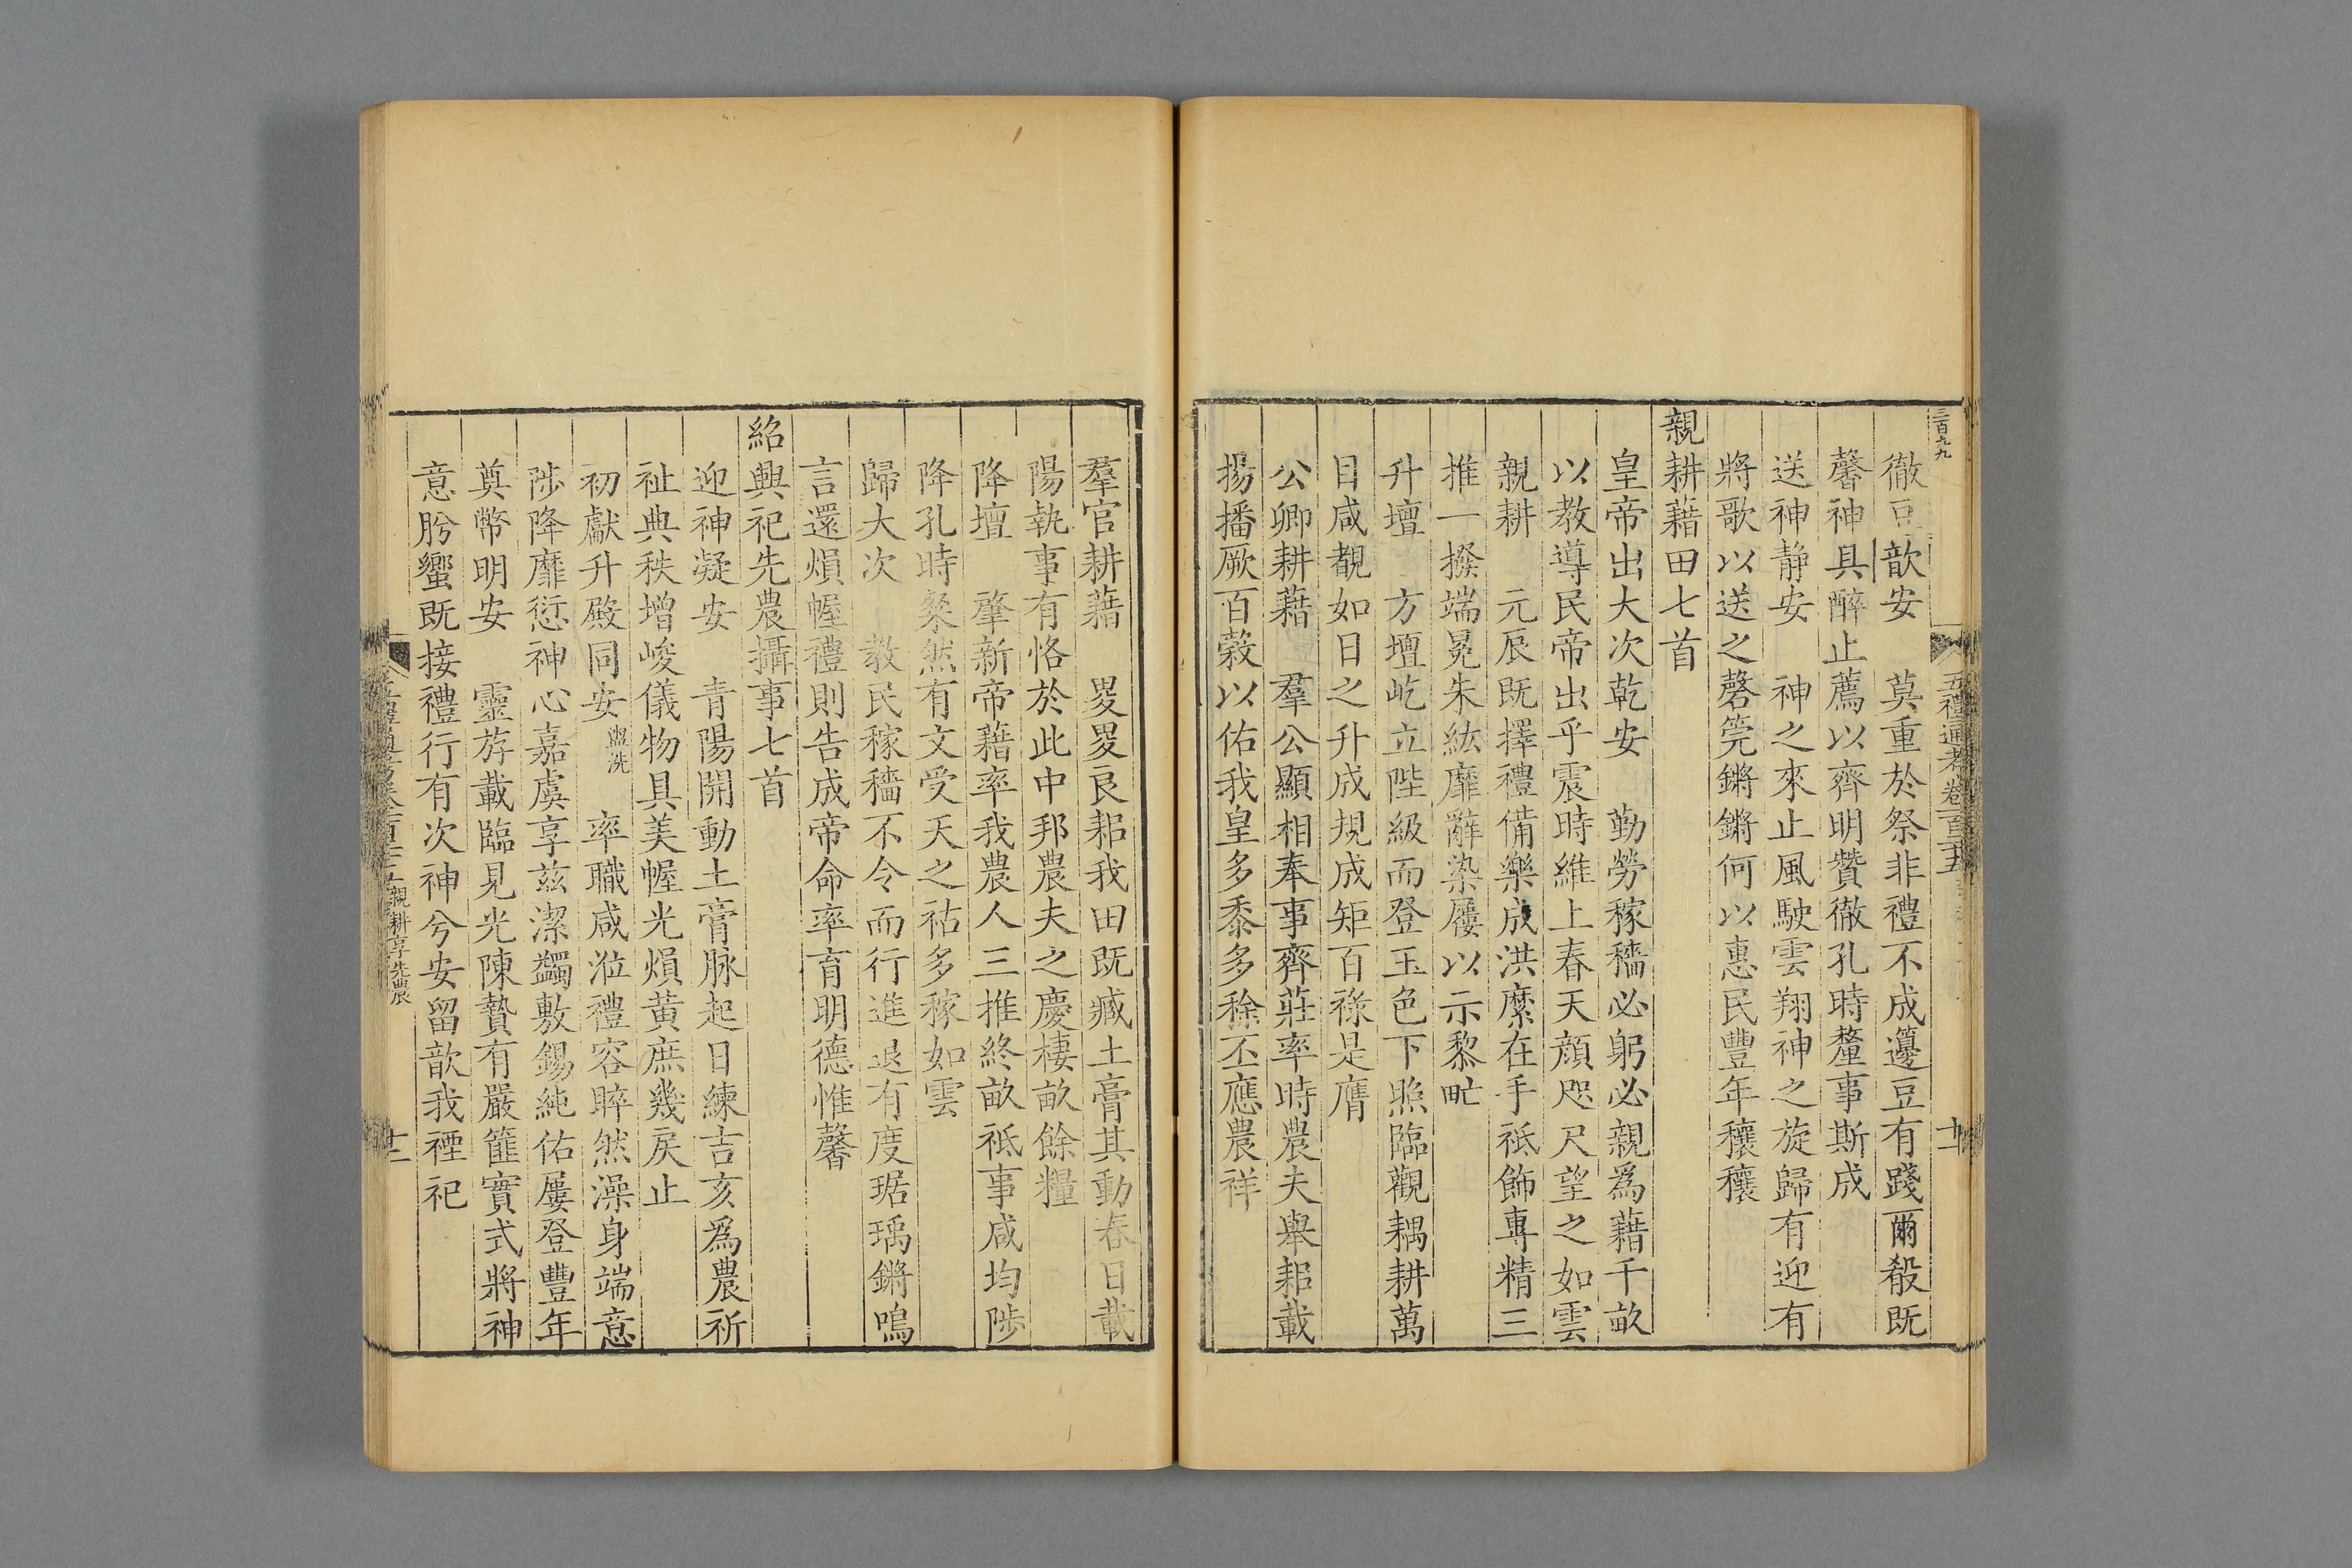 三百九九
五禮通考卷一百二十五
十一
徹豆歆安 莫重於祭非禮不成籩豆有踐爾殽既
馨神具醉止薦以齊明贊徹孔時釐事斯成
送神静安 神之來止風駛雲翔神之旋歸有迎有
將歌以送之磬筦鏘鏘何以惠民豐年穰穰
親耕藉田七首
皇帝出大次乾安 勤勞稼穡必躬必親爲藉千畝
以教導民帝出乎震時維上春天顔咫尺望之如雲
親耕 元辰既擇禮備樂成洪縻在手祗飾專精三
推一撥端冕朱紘靡辭染屨以示黎甿
升壇 方壇屹立陛級而登玉色下照臨觀耦耕萬
目咸覩如日之升成規成矩百祿是膺
公卿耕藉 羣公顯相奉事齊莊率時農夫舉耜載
揚播厥百穀以佑我皇多黍多稌丕應農祥
羣官耕藉 畟畟良耜我田既臧土膏其動春日載
陽執事有恪於此中邦農夫之慶棲畝餘糧
降壇 肇新帝藉率我農人三推終畝祗事咸均陟
降孔時粲然有文受天之祜多稼如雲
歸大次 教民稼穡不令而行進退有度琚瑀鏘鳴
言還煩幄禮則告成帝命率育明德惟馨
紹興祀先農攝事七首
迎神凝安 青陽開動土膏脉起日練吉亥爲農祈
祉典秩增峻儀物具美幄光煩黃庶幾戾止
初獻升殿同安盥洗 率職咸涖禮容睟然澡身端意
陟降靡愆神心嘉虞享兹潔蠲敷錫純佑屢登豐年
奠幣明安 靈斿載臨見光陳贄有嚴篚實式將神
意肸蠁既接禮行有次神兮安留歆我禋祀
親耕享先農
十二